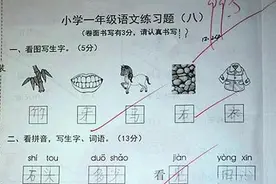 小学一年级语文练习题（八）
（卷面书写有3分，请认真书写！）
一、看图写生字。（5分）
竹 牙 马 石 衣
二、看拼音，写生字、词语。（13分）
shí tou duō shǎo jiàn yòng xīn
石头 多少 看